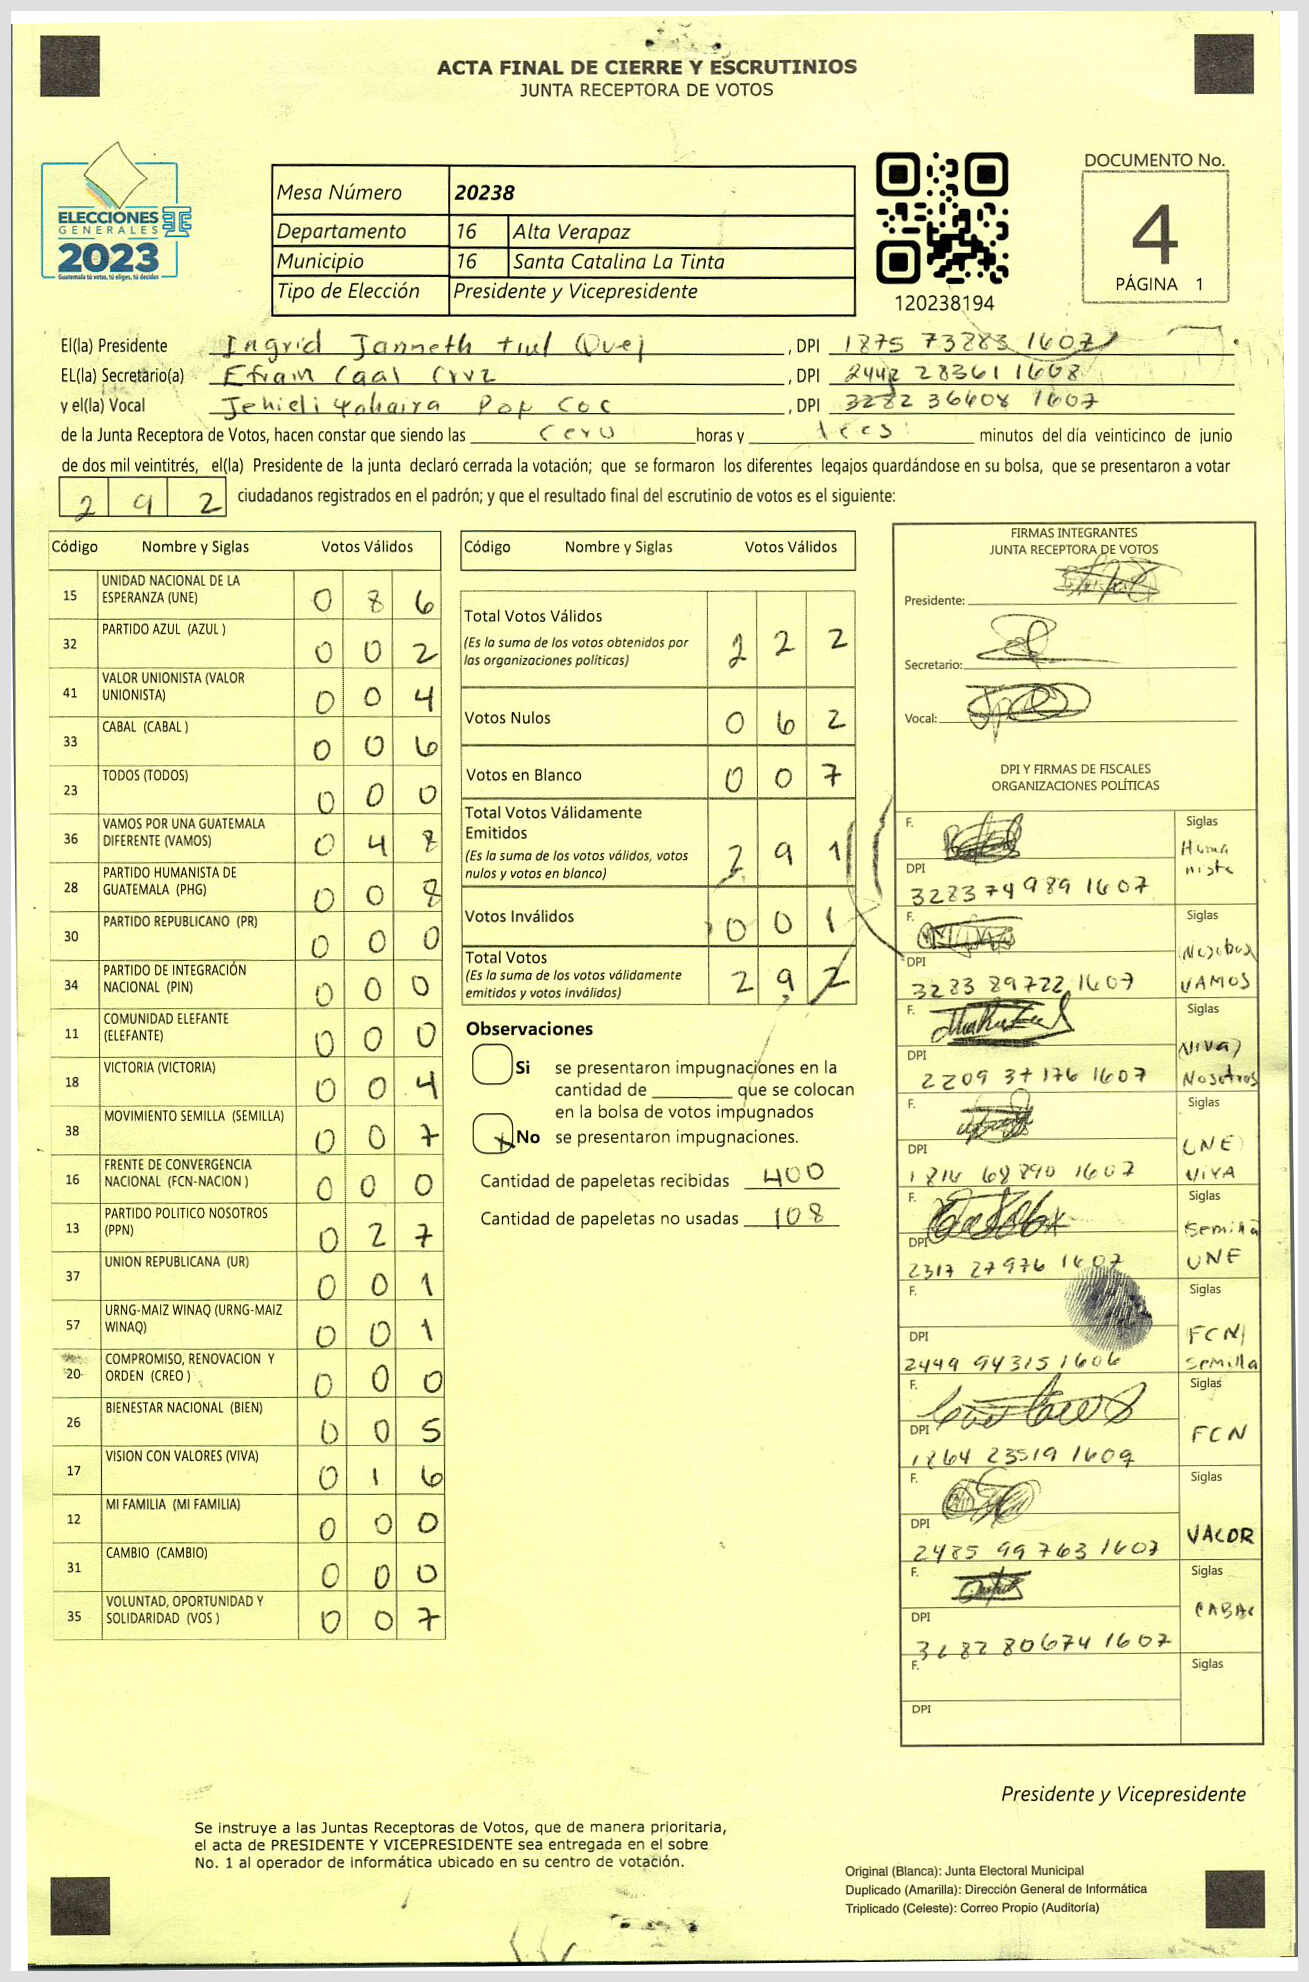 ACTA FINAL DE CIERRE Y ESCRUTINIOS
JUNTA RECEPTORA DE VOTOS
ELECCIONES
GENERALES
2023
Guatemala tú votas, tú eliges, tú decides
Mesa Número 20238
Departamento 16 Alta Verapaz
Municipio 16 Santa Catalina La Tinta
Tipo de Elección Presidente y Vicepresidente
120238194
DOCUMENTO No.
4
PÁGINA 1
El(la) Presidente Ingrid Janneth tiul Quej , DPI 1875 73283 1607
EL(la) Secretario(a) Efrain Caal Cruz , DPI 2442 28361 1608
y el(la) Vocal Jehieli Yahaira Pop Coc , DPI 3282 36408 1607
de la Junta Receptora de Votos, hacen constar que siendo las cero horas y tres minutos del día veinticinco de junio
de dos mil veintitrés, el(la) Presidente de la junta declaró cerrada la votación; que se formaron los diferentes legajos guardándose en su bolsa, que se presentaron a votar
292 ciudadanos registrados en el padrón; y que el resultado final del escrutinio de votos es el siguiente:
Código Nombre y Siglas Votos Válidos
15 UNIDAD NACIONAL DE LA ESPERANZA (UNE) 086
32 PARTIDO AZUL (AZUL ) 002
41 VALOR UNIONISTA (VALOR UNIONISTA) 004
33 CABAL (CABAL ) 006
23 TODOS (TODOS) 000
36 VAMOS POR UNA GUATEMALA DIFERENTE (VAMOS) 048
28 PARTIDO HUMANISTA DE GUATEMALA (PHG) 008
30 PARTIDO REPUBLICANO (PR) 000
34 PARTIDO DE INTEGRACIÓN NACIONAL (PIN) 000
11 COMUNIDAD ELEFANTE (ELEFANTE) 000
18 VICTORIA (VICTORIA) 004
38 MOVIMIENTO SEMILLA (SEMILLA) 007
16 FRENTE DE CONVERGENCIA NACIONAL (FCN-NACION ) 000
13 PARTIDO POLITICO NOSOTROS (PPN) 027
37 UNION REPUBLICANA (UR) 001
57 URNG-MAIZ WINAQ (URNG-MAIZ WINAQ) 001
20 COMPROMISO, RENOVACION Y ORDEN (CREO ) 000
26 BIENESTAR NACIONAL (BIEN) 005
17 VISION CON VALORES (VIVA) 016
12 MI FAMILIA (MI FAMILIA) 000
31 CAMBIO (CAMBIO) 000
35 VOLUNTAD, OPORTUNIDAD Y SOLIDARIDAD (VOS ) 007
Código Nombre y Siglas Votos Válidos
Total Votos Válidos 222
(Es la suma de los votos obtenidos por
las organizaciones politicas)
Votos Nulos 062
Votos en Blanco 007
Total Votos Válidamente
Emitidos 291
(Es la suma de los votos válidos, votos
nulos y votos en blanco)
Votos Inválidos 001
Total Votos 292
(Es la suma de los votos válidamente
emitidos y votos inválidos)
Observaciones
Si se presentaron impugnaciones en la
cantidad de ________ que se colocan
en la bolsa de votos impugnados
x No se presentaron impugnaciones.
Cantidad de papeletas recibidas 400
Cantidad de papeletas no usadas 108
FIRMAS INTEGRANTES
JUNTA RECEPTORA DE VOTOS
Presidente:
Secretario:
Vocal:
DPI Y FIRMAS DE FISCALES
ORGANIZACIONES POLÍTICAS
F. Siglas
Huma
niste
DPI 3283 74989 1607
F. Siglas
DPI 3283 89722 1607 VAMOS
F. Siglas
VIVA)
DPI 2209 37176 1607 Nosotros
F. Siglas
UNE)
DPI 1814 68890 1607 VIVA
F. Siglas
Semilla
DPI 2317 27976 1607 UNE
F. Siglas
FCN)
DPI 2449 94315 1606 Semilla
F. Siglas
DPI 1864 23519 1609 FCN
F. Siglas
DPI 2485 99763 1607 VALOR
F. Siglas
CABAL
DPI 3682 80674 1607
F. Siglas
DPI
Presidente y Vicepresidente
Se instruye a las Juntas Receptoras de Votos, que de manera prioritaria,
el acta de PRESIDENTE Y VICEPRESIDENTE sea entregada en el sobre
No. 1 al operador de informática ubicado en su centro de votación.
Original (Blanca): Junta Electoral Municipal
Duplicado (Amarilla): Dirección General de Informática
Triplicado (Celeste): Correo Propio (Auditoría)